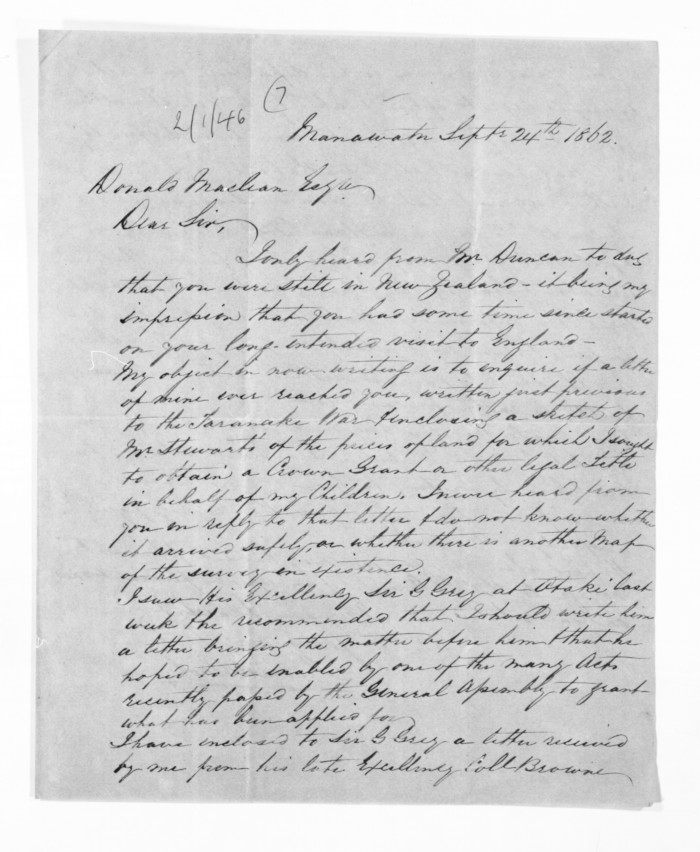 2/1/46 (7
Manawatu Septr 24th 1862.
Donald Maclean Esqre
Dear Sir,
I only heard from Mr Duncan to day
that you were still in New Zealand - it being my
impression that you had some time since started
on your long-intended visit to England -
My object in now writing is to enquire if a letter
of mine ever reached you, written just previous
to the Taranaki War & inclosing a sketch of
Mr Stewart's of the pieces of land for which I sought
to obtain a Crown Grant or other legal Title
in behalf of my Children. I never heard from
you in reply to that letter & do not know whether
it arrived safely, or whether there is another Map
of the survey in existence.
I saw His Excellency Sir G Grey at Otaki last
week & he recommended that I should write him
a letter bringing the matter before him & that he
hoped to be enabled by one of the many Acts
recently passed by the General Assembly to grant
what has been applied for
I have inclosed to Sir G Grey a letter received
by me from his late Excellency Coll Browne